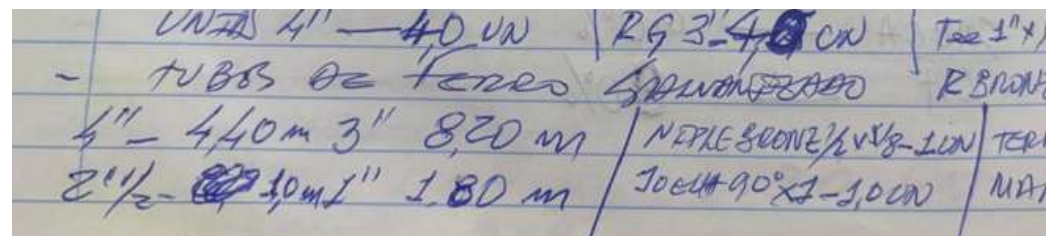 UNIÃO 4" — 4,0 UN | RG 3" - 4,0 UN | Tee 1" x
- TUBOS DE FERRO GALVANIZADO R BRONZ
4" - 4,40 m 3" 8,20 m | NIPLE BRONZE 1/2 x 3/8 - 1 UN | TER
2" 1/2 - 1,0 m 1" 1.80 m | JOELH 90° x 1 - 1,0 UN | MA